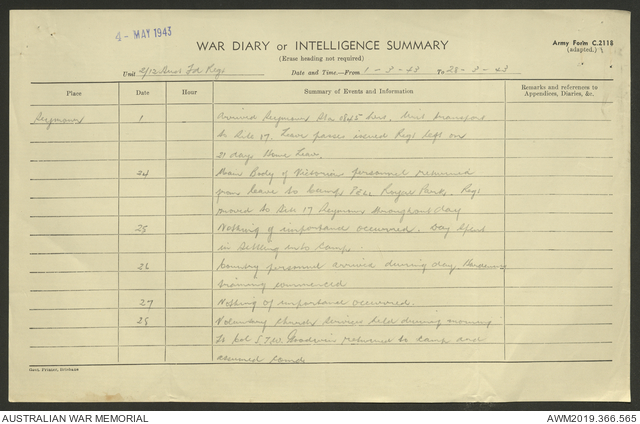 4 - MAY 1943
WAR DIARY or INTELLIGENCE SUMMARY
Army Form C.2118
(adapted.)
(Erase heading not required)
Unit 2/12 Aust Fd Regt
Date and Time—From 1 - 3 - 43 To 28 - 3 - 43
Place Date Hour Summary of Events and Information Remarks and references to Appendices, Diaries, &c.
Seymour 1 Arrived Seymour Stn 1845 hrs, Unit transport
to Site 17. Leave passes issued Regt left on
21 days Home Leave.
24 Main Body of Victorian personnel returned
from leave to Camp Pell Royal Park. Regt
moved to Site 17 Seymour throughout day
25 Nothing of importance occurred. Day spent
in settling into Camp.
26 Country personnel arrive during day.
training commenced
27 Nothing of importance occurred.
28 Voluntary Church Services held during morning
Lt Col S.T.W. Goodwin returned to camp and
assumed comd
Govt. Printer, Brisbane
AUSTRALIAN WAR MEMORIAL
AWM2019.366.565